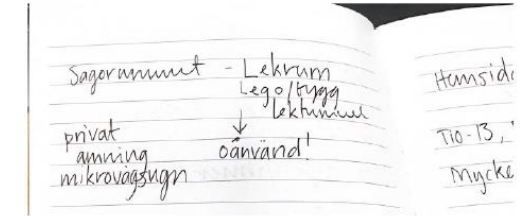 Sagorummet - Lekrum
Lego/bygg
↓ lektunnel
privat
amning oänvänd!
mikrovågsugn
Hemsida
Tio-13,
Mycke